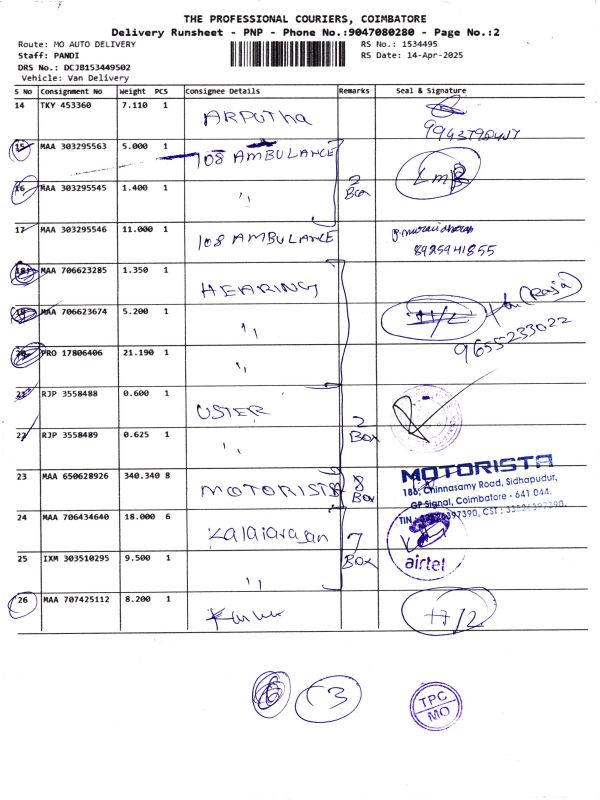 THE PROFESSIONAL COURIERS, COIMBATORE
Delivery Runsheet - PNP - Phone No.:9047080280 - Page No.:2
Route: MO AUTO DELIVERY
RS No.: 1534495
Staff: PANDI
RS Date: 14-Apr-2025
DRS No.: DCJB153449502
Vehicle: Van Delivery
S No Consignment No Weight PCS Consignee Details Remarks Seal & Signature
14 TKY 453360 7.110 1 ARPUTHA
15 MAA 303295563 5.000 1 108 AMBULANCE
16 MAA 303295545 1.400 1 " 2 Box
17 MAA 303295546 11.000 1 108 AMBULANCE 8925941855
18 MAA 706623285 1.350 1 HEARING
19 MAA 706623674 5.200 1 " (Raja)
20 PRO 17806406 21.190 1 " 9655233022
21 RJP 3558488 0.600 1 USTER
22 RJP 3558489 0.625 1 " 2 Box
23 MAA 650628926 340.340 8 MOTORISTA 8 Box
MOTORISTA
186, Chinnasamy Road, Sidhapudur,
GP Signal, Coimbatore - 641 044.
24 MAA 706434640 18.000 6 Kalaiarasan
25 IXM 303510295 9.500 1 " 7 Box
airtel
26 MAA 707425112 8.200 1
13
TPC
MO